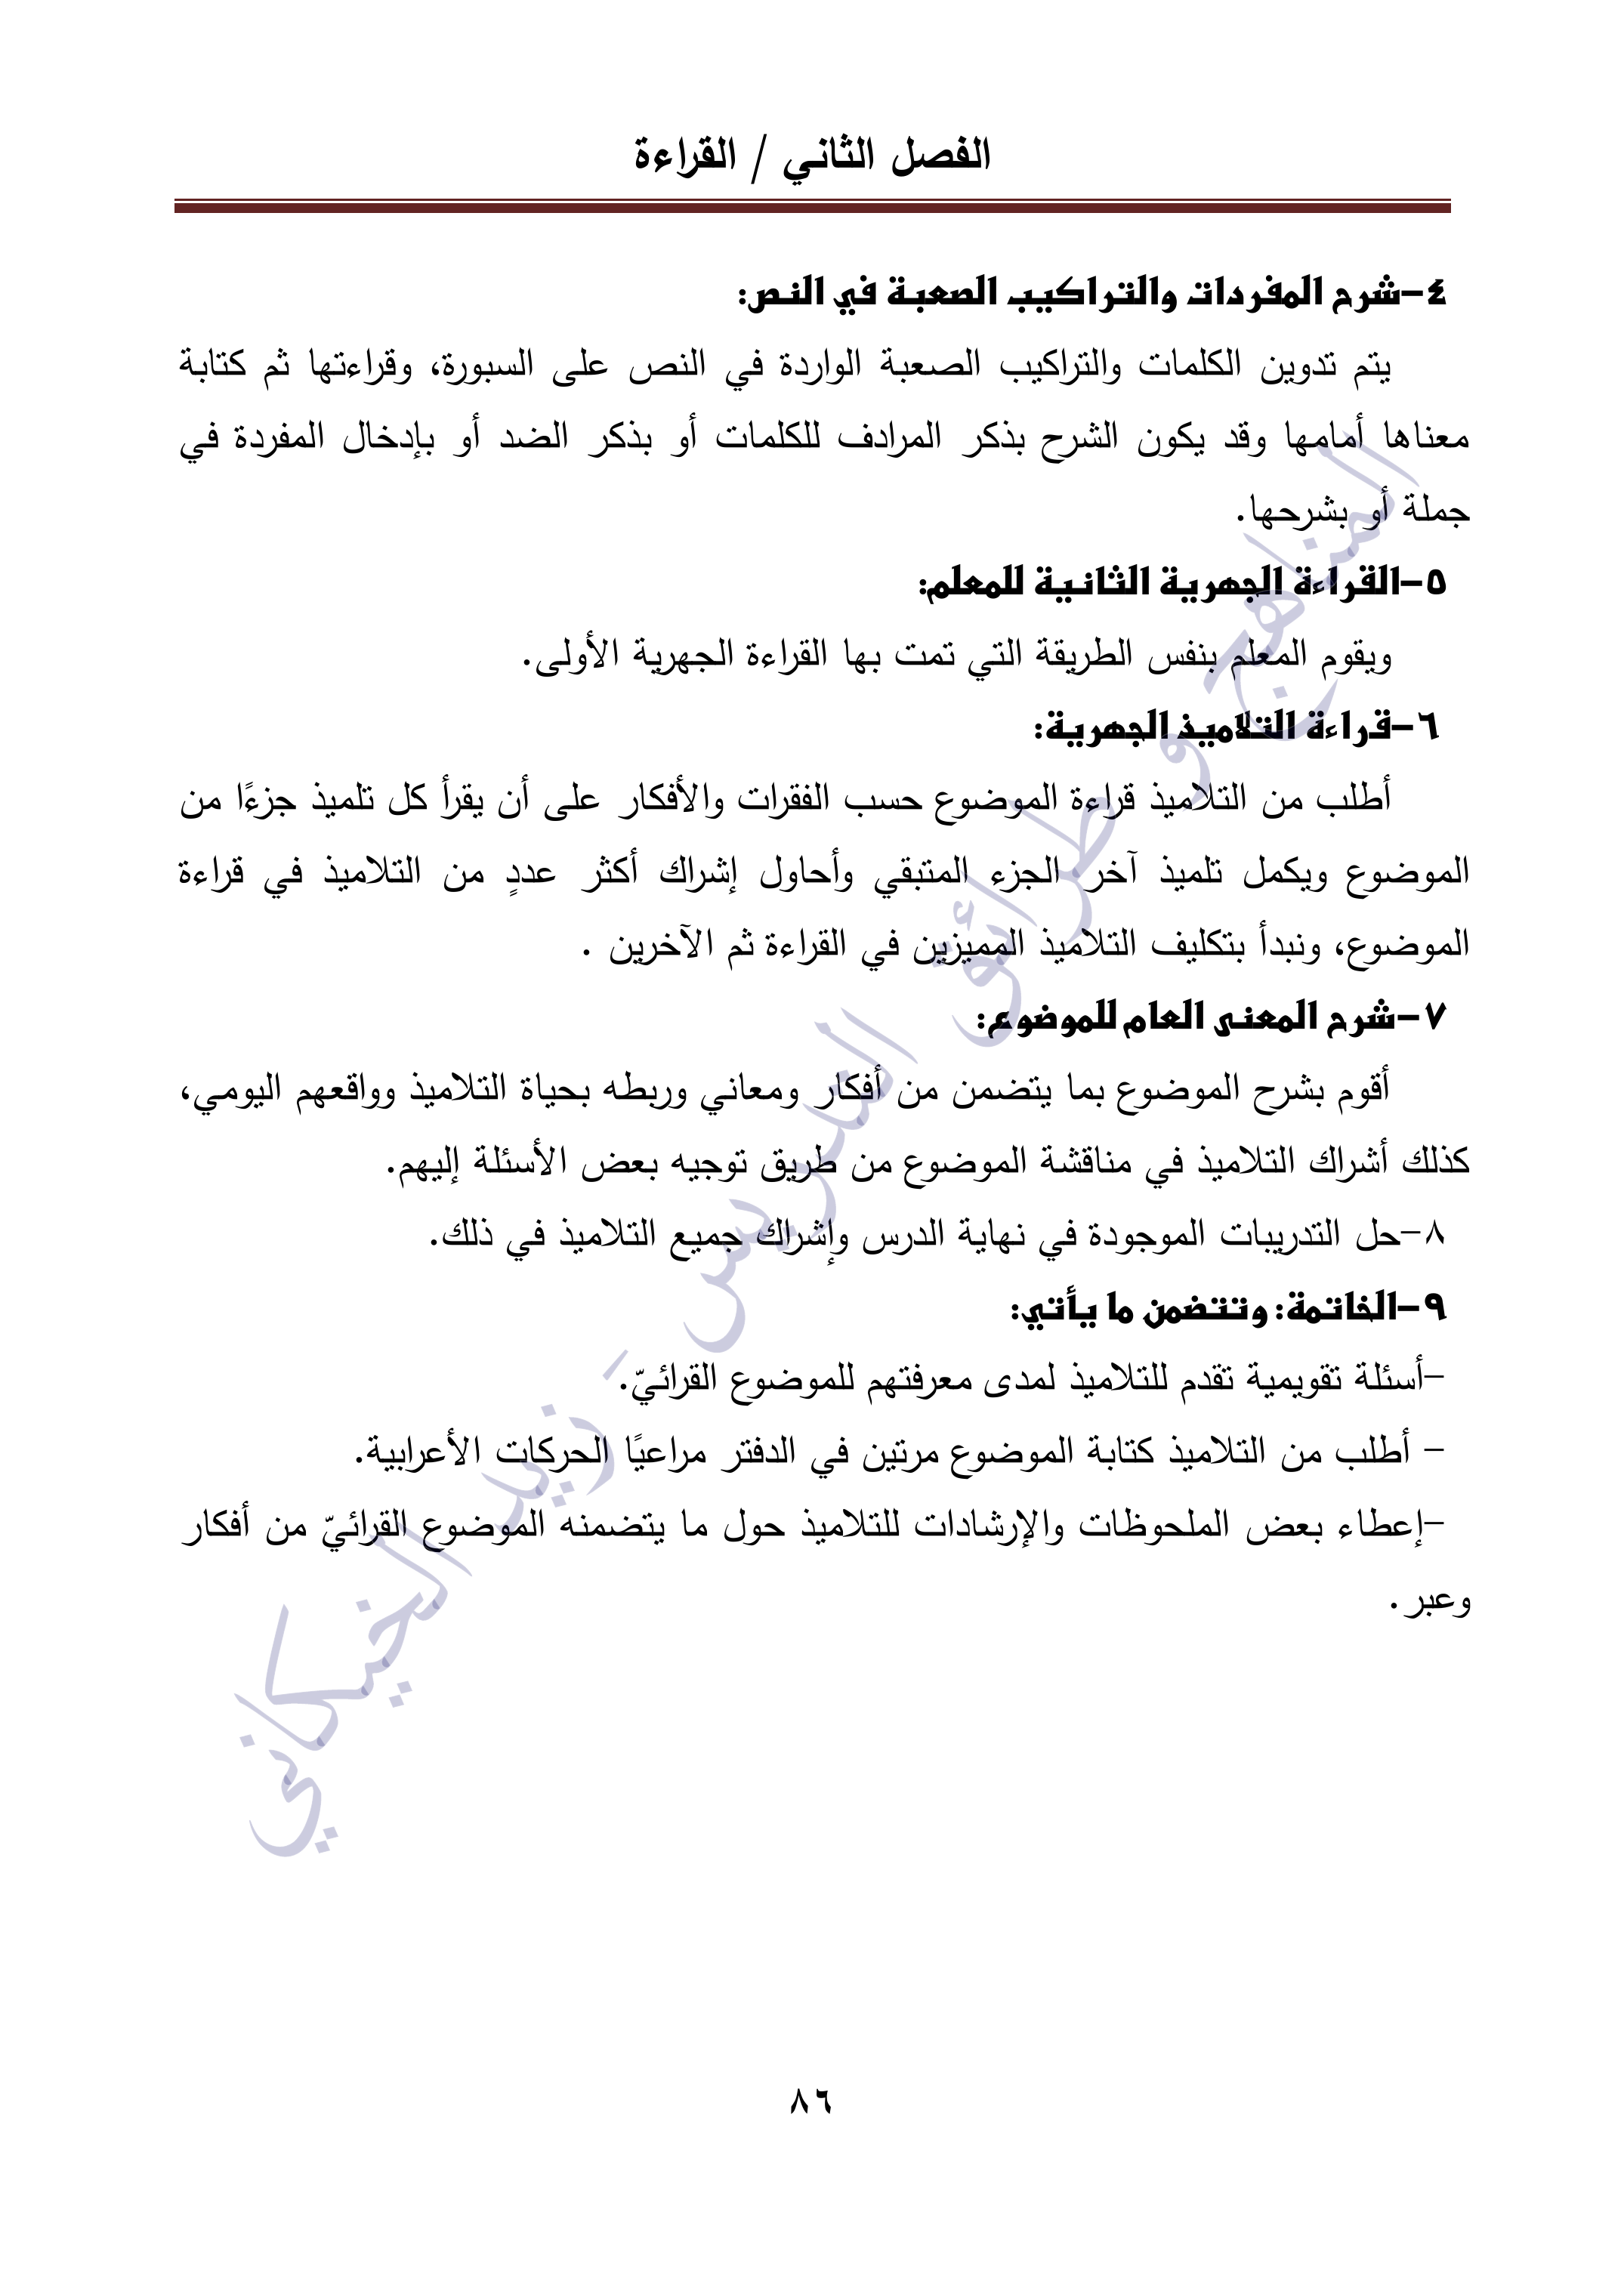 الفصل الثاني / القراءة
٤-شرح المفردات والتراكيب الصعبة في النص:
يتم تدوين الكلمات والتراكيب الصعبة الواردة في النص على السبورة، وقراءتها ثم كتابة
معناها أمامها وقد يكون الشرح بذكر المرادف للكلمات أو بذكر الضد أو بإدخال المفردة في
جملة أو بشرحها.
٥-القراءة الجهرية الثانية للمعلم:
ويقوم المعلم بنفس الطريقة التي تمت بها القراءة الجهرية الأولى.
٦-قراءة التلاميذ الجهرية:
أطلب من التلاميذ قراءة الموضوع حسب الفقرات والأفكار على أن يقرأ كل تلميذ جزءًا من
الموضوع ويكمل تلميذ آخر الجزء المتبقي وأحاول إشراك أكثر عددٍ من التلاميذ في قراءة
الموضوع، ونبدأ بتكليف التلاميذ المميزين في القراءة ثم الآخرين .
٧-شرح المعنى العام للموضوع:
أقوم بشرح الموضوع بما يتضمن من أفكار ومعاني وربطه بحياة التلاميذ وواقعهم اليومي،
كذلك أشراك التلاميذ في مناقشة الموضوع من طريق توجيه بعض الأسئلة إليهم.
٨-حل التدريبات الموجودة في نهاية الدرس وإشراك جميع التلاميذ في ذلك.
٩-الخاتمة: وتتضمن ما يأتي:
-أسئلة تقويمية تقدم للتلاميذ لمدى معرفتهم للموضوع القرائيّ.
- أطلب من التلاميذ كتابة الموضوع مرتين في الدفتر مراعيًا الحركات الأعرابية.
-إعطاء بعض الملحوظات والإرشادات للتلاميذ حول ما يتضمنه الموضوع القرائيّ من أفكار
وعبر.
المناهج و طرائق التدريس - زيد الخيكاني
٨٦